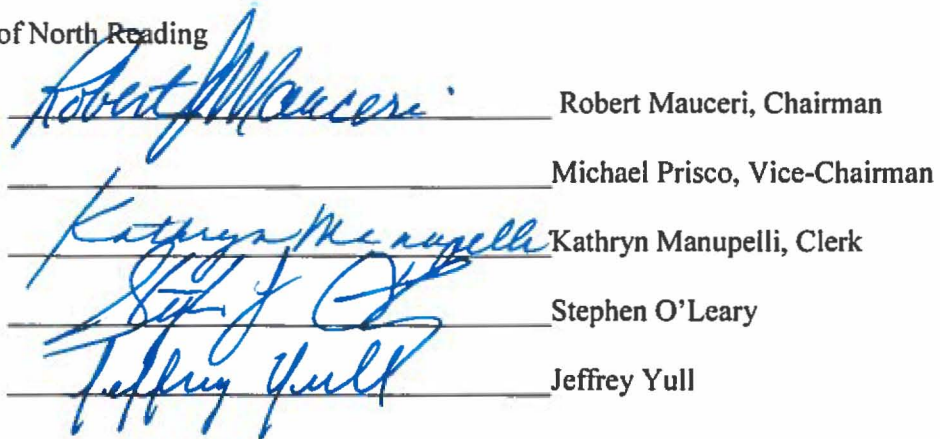 of North Reading
Robert J Mauceri Robert Mauceri, Chairman
Michael Prisco, Vice-Chairman
Kathryn Manupelli Kathryn Manupelli, Clerk
Stephen O'Leary
Jeffrey Yull Jeffrey Yull